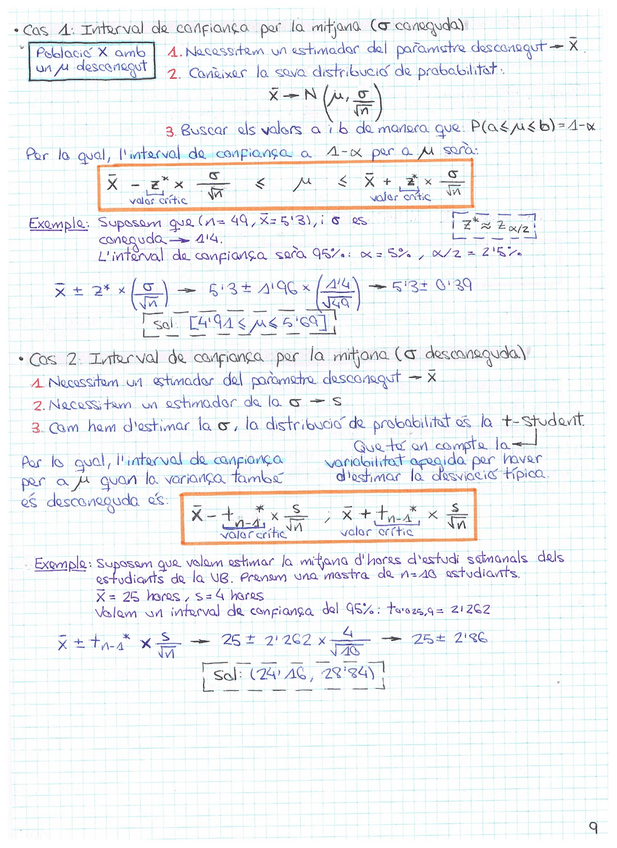 • Cas 1: Interval de confiança per la mitjana (σ coneguda)
Població X amb un μ desconegut
1. Necessitem un estimador del paràmetre desconegut → X̄.
2. Conèixer la seva distribució de probabilitat:
X̄ → N(μ, σ/√n)
3. Buscar els valors a i b de manera que P(a ≤ μ ≤ b) = 1-α
Per la qual, l'interval de confiança a 1-α per a μ serà:
X̄ - z* × σ/√n ≤ μ ≤ X̄ + z* × σ/√n
valor crític valor crític
Exemple: Suposem que (n = 49, X̄ = 5'3), i σ es
coneguda → 1'4.
z* ≈ z α/2
L'interval de confiança serà 95%: α = 5%, α/2 = 2'5%
X̄ ± z* × (σ/√n) → 5'3 ± 1'96 × (1'4/√49) → 5'3 ± 0'39
Sol: [4'91 ≤ μ ≤ 5'69]
• Cas 2: Interval de confiança per la mitjana (σ desconeguda)
1. Necessitem un estimador del paràmetre desconegut → X̄
2. Necessitem un estimador de la σ → s
3. Com hem d'estimar la σ, la distribució de probabilitat és la t-Student.
Que té en compte la
variabilitat afegida per haver
d'estimar la desviació típica.
Per lo qual, l'interval de confiança
per a μ quan la variança també
és desconeguda és:
X̄ - t n-1* × s/√n ; X̄ + t n-1* × s/√n
valor crític valor crític
Exemple: Suposem que volem estimar la mitjana d'hores d'estudi setmanals dels
estudiants de la UB. Prenem una mostra de n=10 estudiants.
X̄ = 25 hores, s = 4 hores
Volem un interval de confiança del 95%: t0'025,9 = 2'262
X̄ ± t n-1* × s/√n → 25 ± 2'262 × 4/√10 → 25 ± 2'86
Sol: (24'16, 28'84)
9